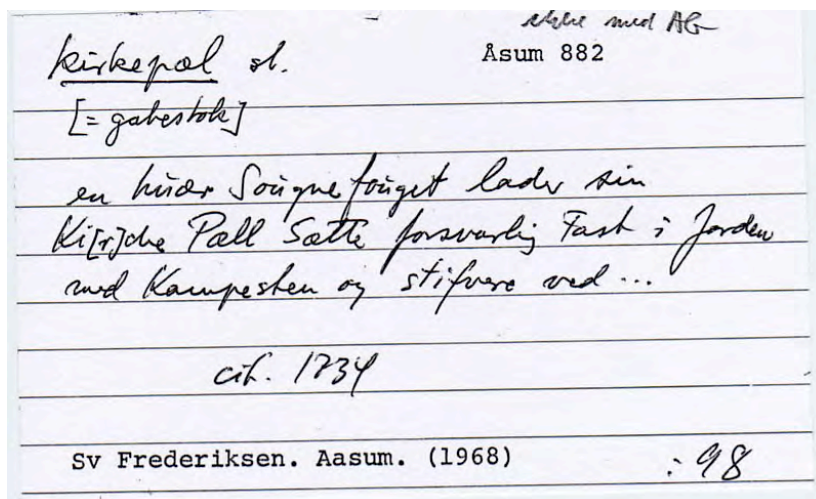 ikke med AG
kirkepæl sb.
Åsum 882
[= gabestok]
en huær Sougnefouget lader sin
Ki[r]che Pæll Sætte forsvarlig Fast i Jorden
med Kampesten og stifvere ved ...
cit. 1734
Sv Frederiksen. Aasum. (1968)
: 98